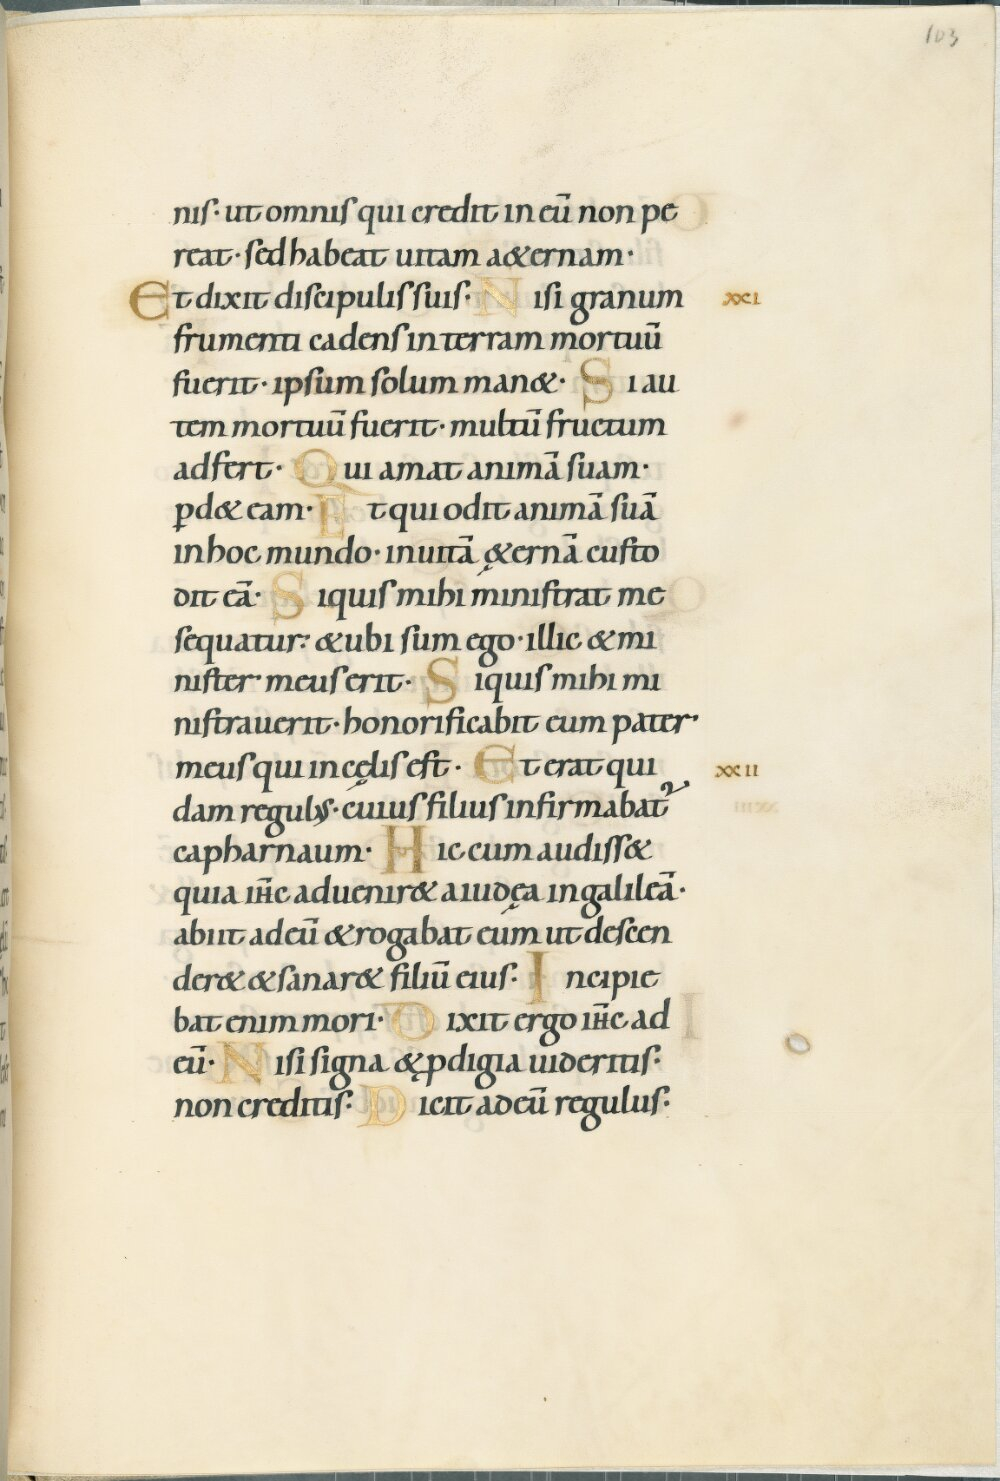 103
nis· ut omnis qui credit in eū non pe
reat· sed habeat uitam a&ernam·
Et dixit discipulis suis· Nisi granum XXI
frumenti cadens in terram mortuū
fuerit· ipsum solum man&· Si au
tem mortuū fuerit· multū fructum
adfert· Qui amat animā suam·
ꝑd& eam· Et qui odit animā suā
in hoc mundo· in uitā ę&ernā custo
dit eā· Siquis mihi ministrat me
sequatur: & ubi sum ego· illic & mi
nister meus erit· Siquis mihi mi
nistrauerit· honorificabit eum pater·
meus qui in cęlis est· Et erat qui XXII
dam regulus· cuius filius infirmabat᷑
capharnaum· Hic cum audiss&
quia ihc aduenir& a iudęa in galileā·
abiit ad eū & rogabat eum ut descen
der& & sanar& filiū eius· Incipie
bat enim mori· Dixit ergo ihc ad
eū· Nisi signa & ꝓdigia uideritis·
non creditis· Dicit ad eū regulus·